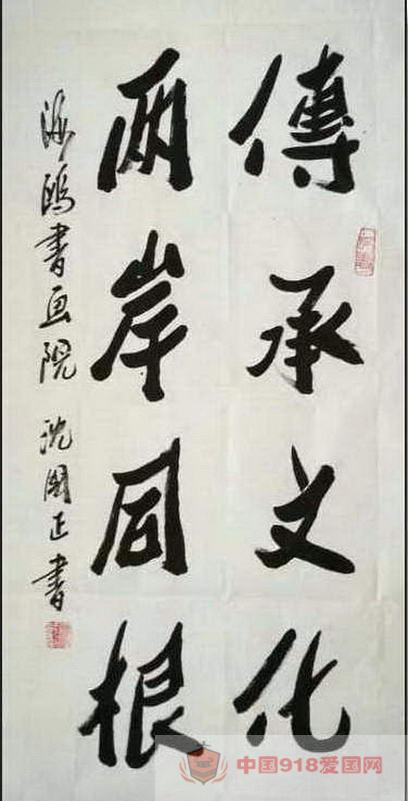 傳承文化
兩岸同根
海鸥書画院 沈國正書
中国918爱国网